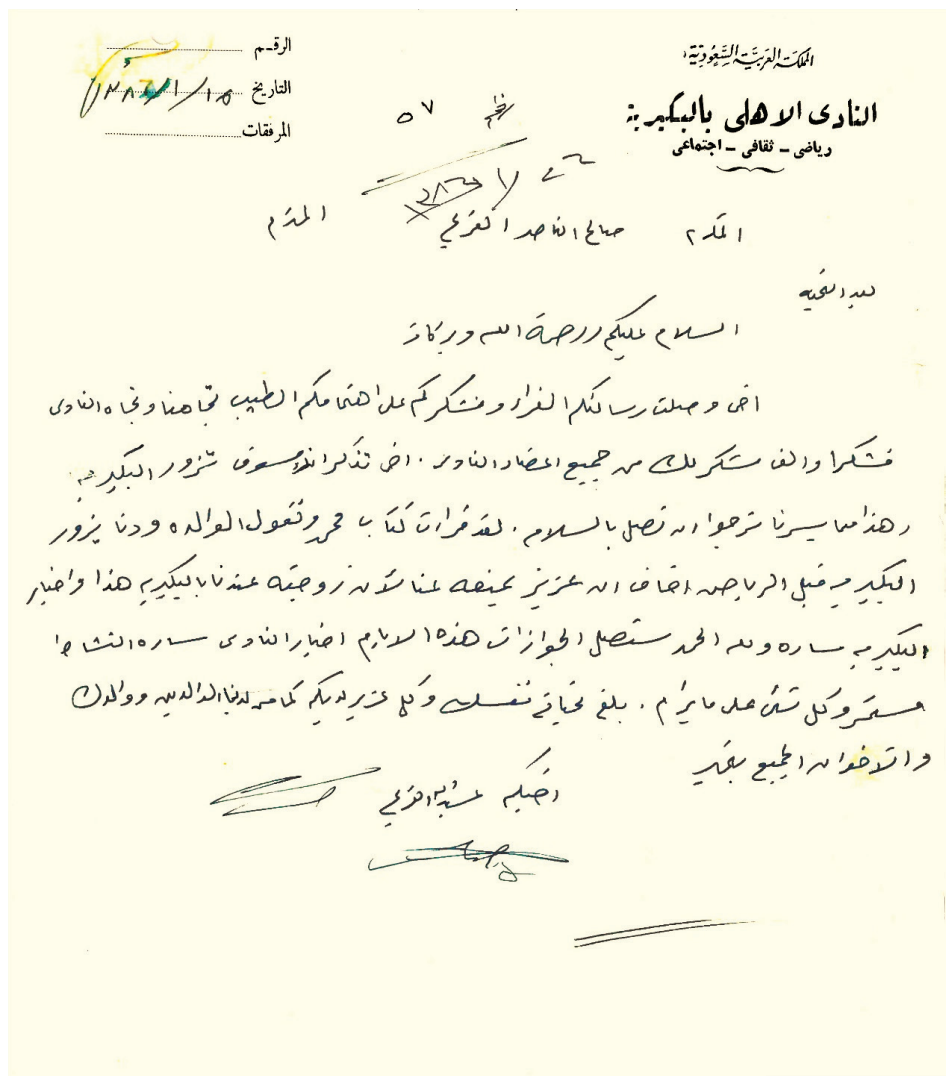 المملكة العربية السعودية
النادى الاهلى بالبكيرية
رياضى - ثقافى - اجتماعى
الرقم
التاريخ ١٥/١/١٣٨٦
المرفقات
٥٧
المكرم صالح الناصر القزعي المحترم
بعد التحيه
السلام عليكم ورحمة الله وبركاته
اخى وصلت رسالتكم الغراء ونشكركم على اهتمامكم الطيب تجاهنا وتجاه النادى
فشكرا والف شكر لك من جميع اعضاء النادى . اخى تذكر انك سوف تزور البكيريه
وهذا مما يسرنا نرجوا ان تصل بالسلامه . لقد قرات كتاب محمد وتقول الوالده ودنا يزور
البكيريه قبل الرياض اخاف ان عزيز يمنعه عنا لأن زوجته عندنا بالبكيريه هذا واخبار
البكيريه ساره ولله الحمد ستصل الجوازات هذه الايام اخبار النادى ساره النشاط
مستمر وكل شئ على ما يرام . بلغ تحياتى نفسك وكل عزيز لديكم كما من لدينا الوالدين ووالدك
والاخوان الجميع بخير
اخيكم القزعي